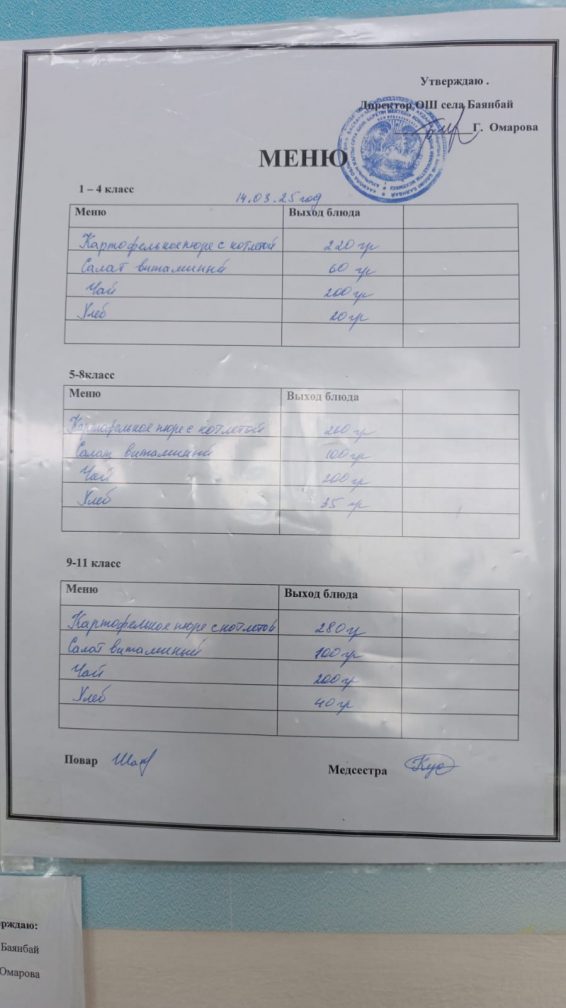 Утверждаю .
Директор ОШ села Баянбай
Г. Омарова
МЕНЮ
1 – 4 класс
14.03.25 год
Меню Выход блюда
Картофельное пюре с котлетой 220 гр
Салат витаминный 60 гр
Чай 200 гр
Хлеб 20 гр
5-8класс
Меню Выход блюда
Картофельное пюре с котлетой 260 гр
Салат витаминный 100 гр
Чай 200 гр
Хлеб 35 гр
9-11 класс
Меню Выход блюда
Картофельное пюре с котлетой 280 гр
Салат витаминный 100 гр
Чай 200 гр
Хлеб 40 гр
Повар
Медсестра
рждаю:
Баянбай
Омарова